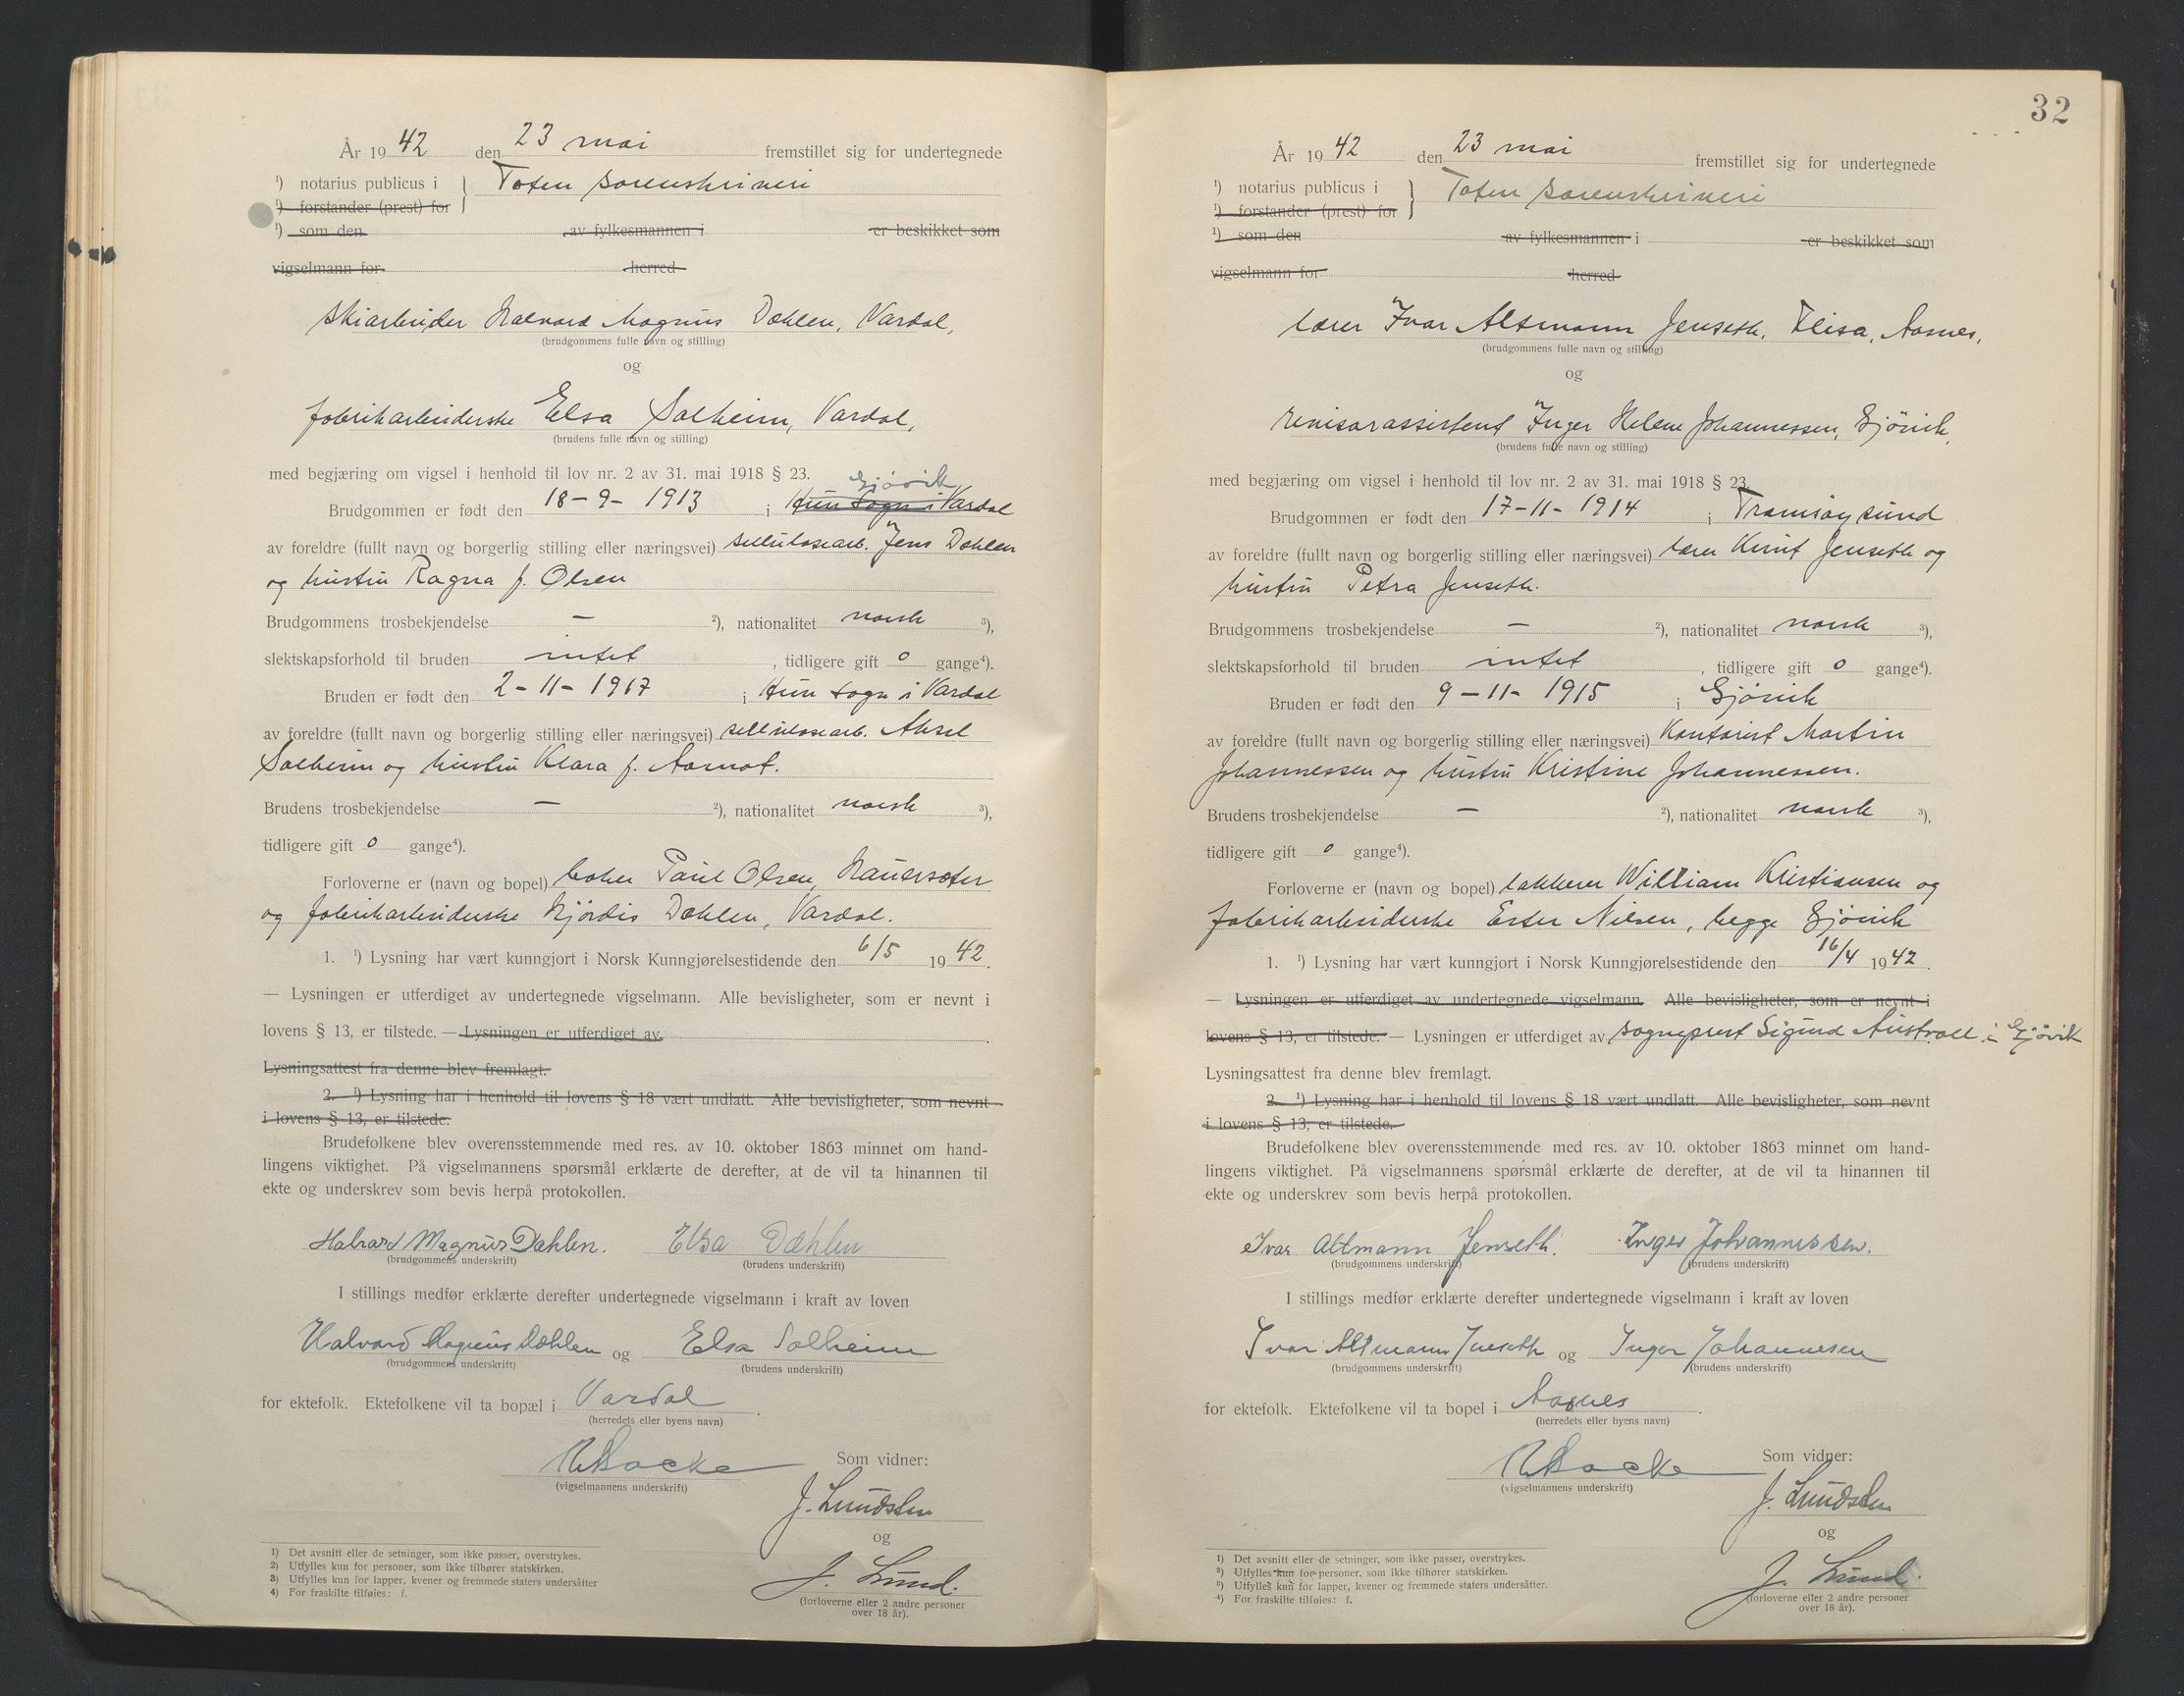 År 1942 den 23 mai fremstillet sig for undertegnede
¹) notarius publicus i } Toten sorenskriveri
¹) forstander (prest) for
¹) som den av fylkesmannen i er beskikket som
vigselmann for herred
skiarbeider Halvard Magnus Dæhlen, Vardal,
(brudgommens fulle navn og stilling)
og
fabrikarbeiderske Elsa Solheim, Vardal,
(brudens fulle navn og stilling)
med begjæring om vigsel i henhold til lov nr. 2 av 31. mai 1918 § 23.
Gjøvik
Brudgommen er født den 18-9-1913 i Hun sogn i Vardal
av foreldre (fullt navn og borgerlig stilling eller næringsvei) cellulosearb. Jens Dæhlen
og hustru Ragna f. Olsen
Brudgommens trosbekjendelse — ²), nationalitet norsk ³),
slektskapsforhold til bruden intet , tidligere gift 0 gange⁴).
Bruden er født den 2-11-1917 i Hun sogn i Vardal
av foreldre (fullt navn og borgerlig stilling eller næringsvei) cellulosearb. Aksel
Solheim og hustru Klara f. Aamot.
Brudens trosbekjendelse — ²), nationalitet norsk ³),
tidligere gift 0 gange⁴).
Forloverne er (navn og bopel) baker Paul Olsen,
og fabrikarbeiderske Hjørdis Dæhlen, Vardal.
1. ¹) Lysning har vært kunngjort i Norsk Kunngjørelsestidende den 6/5 1942.
— Lysningen er utferdiget av undertegnede vigselmann. Alle bevisligheter, som er nevnt i
lovens § 13, er tilstede. — Lysningen er utferdiget av .
Lysningsattest fra denne blev fremlagt.
2. ¹) Lysning har i henhold til lovens § 18 vært undlatt. Alle bevisligheter, som nevnt
i lovens § 13, er tilstede.
Brudefolkene blev overensstemmende med res. av 10. oktober 1863 minnet om hand-
lingens viktighet. På vigselmannens spørsmål erklærte de derefter, at de vil ta hinannen til
ekte og underskrev som bevis herpå protokollen.
Halvard Magnus Dæhlen. Elsa Dæhlen
(brudgommens underskrift) (brudens underskrift)
I stillings medfør erklærte derefter undertegnede vigselmann i kraft av loven
Halvard Magnus Dæhlen og Elsa Solheim
(brudgommens underskrift) (brudens underskrift)
for ektefolk. Ektefolkene vil ta bopæl i Vardal .
(herredets eller byens navn)
Som vidner:
(vigselmannens underskrift)
J. Lundsten
og
J. Lund.
(forloverne eller 2 andre personer
over 18 år).
¹) Det avsnitt eller de setninger, som ikke passer, overstrykes.
²) Utfylles kun for personer, som ikke tilhører statskirken.
³) Utfylles kun for lapper, kvener og fremmede staters undersåtter
⁴) For fraskilte tilføies: f.
32
År 1942 den 23 mai fremstillet sig for undertegnede
¹) notarius publicus i } Toten sorenskriveri
¹) forstander (prest) for
¹) som den av fylkesmannen i er beskikket som
vigselmann for herred
lærer Ivar Altmann Jenseth, Flisa, Aasnes,
(brudgommens fulle navn og stilling)
og
revisorassistent Inger Helene Johannessen, Gjøvik,
(brudens fulle navn og stilling)
med begjæring om vigsel i henhold til lov nr. 2 av 31. mai 1918 § 23.
Brudgommen er født den 17-11-1914 i Tromsøysund
av foreldre (fullt navn og borgerlig stilling eller næringsvei) lærer Knut Jenseth og
hustru Petra Jenseth.
Brudgommens trosbekjendelse — ²), nationalitet norsk ³),
slektskapsforhold til bruden intet , tidligere gift 0 gange⁴).
Bruden er født den 9-11-1915 i Gjøvik
av foreldre (fullt navn og borgerlig stilling eller næringsvei) Kontorist Martin
Johannessen og hustru Kristine Johannessen.
Brudens trosbekjendelse — ²), nationalitet norsk ³),
tidligere gift 0 gange⁴).
Forloverne er (navn og bopel) lakkerer William Kristiansen og
fabrikarbeiderske Ester Nilsen, begge Gjøvik
1. ¹) Lysning har vært kunngjort i Norsk Kunngjørelsestidende den 16/4 1942.
— Lysningen er utferdiget av undertegnede vigselmann. Alle bevisligheter, som er nevnt i
lovens § 13, er tilstede. — Lysningen er utferdiget av sogneprest Sigurd Austvoll i Gjøvik
Lysningsattest fra denne blev fremlagt.
2. ¹) Lysning har i henhold til lovens § 18 vært undlatt. Alle bevisligheter, som nevnt
i lovens § 13, er tilstede.
Brudefolkene blev overensstemmende med res. av 10. oktober 1863 minnet om hand-
lingens viktighet. På vigselmannens spørsmål erklærte de derefter, at de vil ta hinannen til
ekte og underskrev som bevis herpå protokollen.
Ivar Altmann Jenseth. Inger Johannessen.
(brudgommens underskrift) (brudens underskrift)
I stillings medfør erklærte derefter undertegnede vigselmann i kraft av loven
Ivar Altmann Jenseth og Inger Johannesen
(brudgommens underskrift) (brudens underskrift)
for ektefolk. Ektefolkene vil ta bopel i Aasnes .
(herredets eller byens navn)
Som vidner:
(vigselmannens underskrift)
J. Lundsten
og
J. Lund.
(forloverne eller 2 andre personer
over 18 år).
¹) Det avsnitt eller de setninger, som ikke passer, overstrykes.
²) Utfylles kun for personer, som ikke tilhører statskirken.
³) Utfylles kun for lapper, kvener og fremmede staters undersåtter.
⁴) For fraskilte tilføies: f.